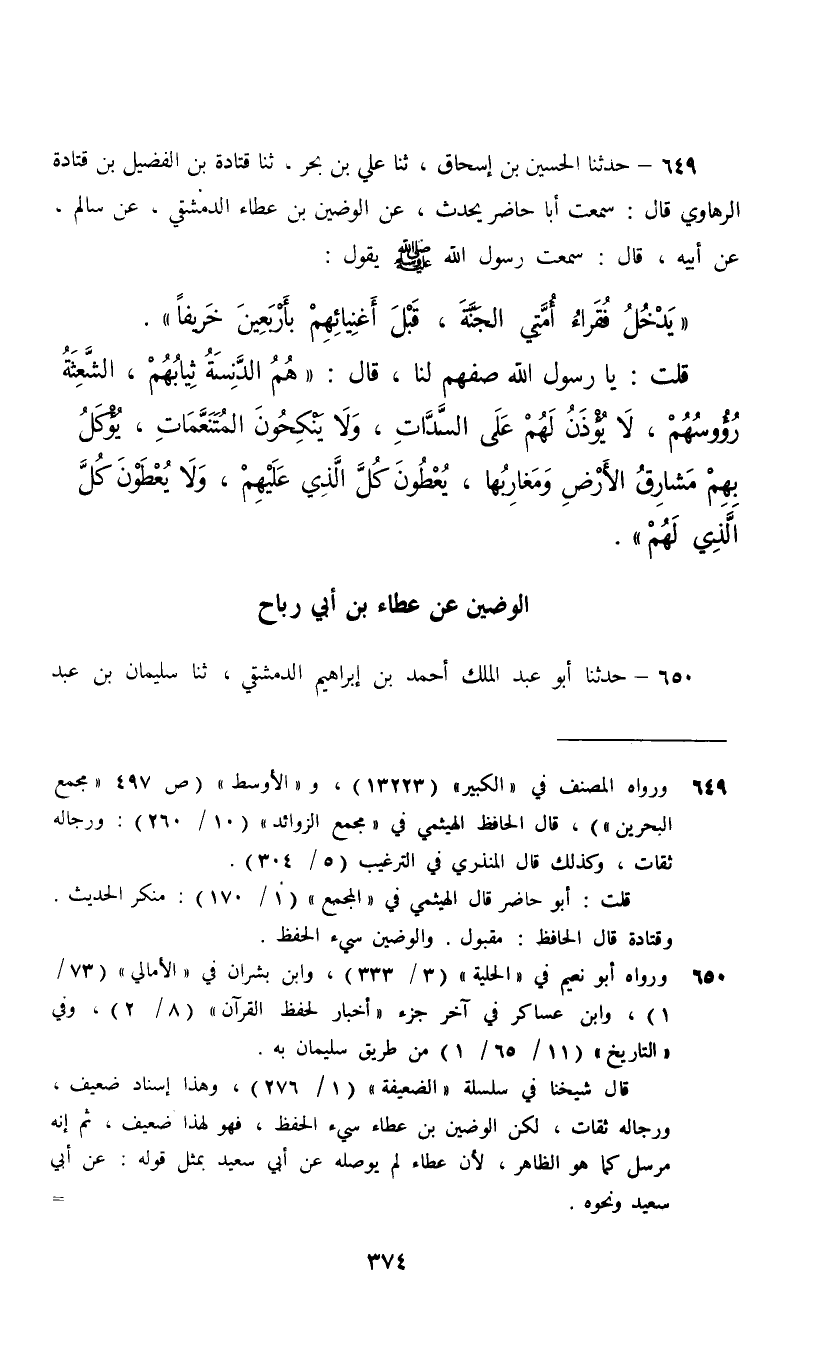 ٦٤٩ – حدثنا الحسين بن إسحاق ، ثنا علي بن بحر ، ثنا قتادة بن الفضيل بن قتادة
الرهاوي قال : سمعت أبا حاضر يحدث ، عن الوضين بن عطاء الدمشقي ، عن سالم ،
عن أبيه ، قال : سمعت رسول الله ﷺ يقول :
« يَدْخُلُ فُقَرَاءُ أُمَّتِي الجَنَّةَ ، قَبْلَ أَغنِيائِهِمْ بأَرْبَعِينَ خَرِيفاً » .
قلت : يا رسول الله صفهم لنا ، قال : « هُمُ الدَّنِسَةُ ثِيابُهُمْ ، الشَّعِثَةُ
رُؤُوسُهُمْ ، لَا يُؤْذَنُ لَهُمْ عَلَى السَّدَّاتِ ، وَلَا يَنْكِحُونَ المُتَنَعَّمَاتِ ، يُؤْكَلُ
بِهِمْ مَشارِقُ الأَرْضِ وَمَغارِبُها ، يُعْطُونَ كُلَّ الَّذِي عَلَيْهِمْ ، وَلَا يُعْطَوْنَ كُلَّ
الَّذِي لَهُمْ » .
الوضين عن عطاء بن أبي رباح
٦٥٠ – حدثنا أبو عبد الملك أحمد بن إبراهيم الدمشقي ، ثنا سليمان بن عبد
٦٤٩ ورواه المصنف في «الكبير» (١٣٢٢٣) ، و «الأوسط» (ص ٤٩٧ «مجمع
البحرين») ، قال الحافظ الهيثمي في «مجمع الزوائد» (١٠ / ٢٦٠) : ورجاله
ثقات ، وكذلك قال المنذري في الترغيب (٥ / ٣٠٤) .
قلت : أبو حاضر قال الهيثمي في «المجمع» (١ / ١٧٠) : منكر الحديث .
وقتادة قال الحافظ : مقبول . والوضين سيء الحفظ .
٦٥٠ ورواه أبو نعيم في «الحلية» (٣ / ٣٣٣) ، وابن بشران في «الأمالي» (٧٣ /
١) ، وابن عساكر في آخر جزء «أخبار لحفظ القرآن» (٨ / ٢) ، وفي
«التاريخ» (١١ / ٦٥ / ١) من طريق سليمان به .
قال شيخنا في سلسلة «الضعيفة» (١ / ٢٧٦) ، وهذا إسناد ضعيف ،
ورجاله ثقات ، لكن الوضين بن عطاء سيء الحفظ ، فهو لهذا ضعيف ، ثم إنه
مرسل كما هو الظاهر ، لأن عطاء لم يوصله عن أبي سعيد بمثل قوله : عن أبي
سعيد ونحوه . =
٣٧٤